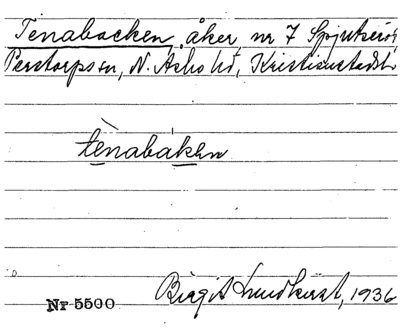 Tenabacken, åker, nr 7 Spjutseröd
Perstorps sn, N. Åsbo hd, Kristianstads l.
tènabáken
Birgit Lundkvist, 1936
Nr 5500